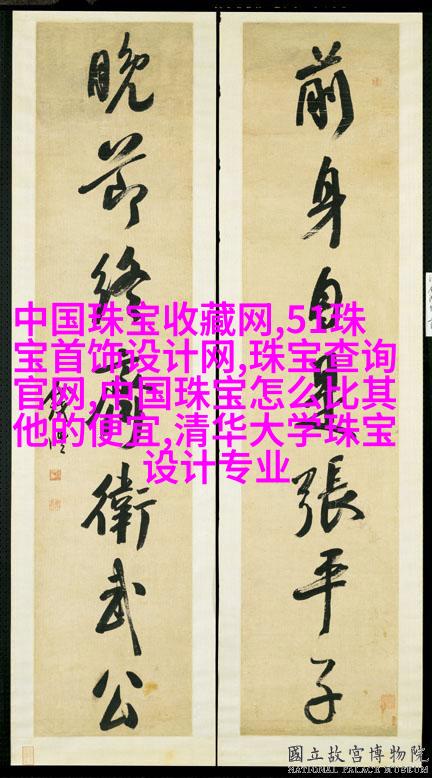 前身自是張平子
晚節終衛武公
中国珠宝收藏网,51珠
宝首饰设计网,珠宝查询
官网,中国珠宝怎么比其
他的便宜,清华大学珠宝
设计专业
國立故宮博物院
NATIONAL PALACE MUSEUM